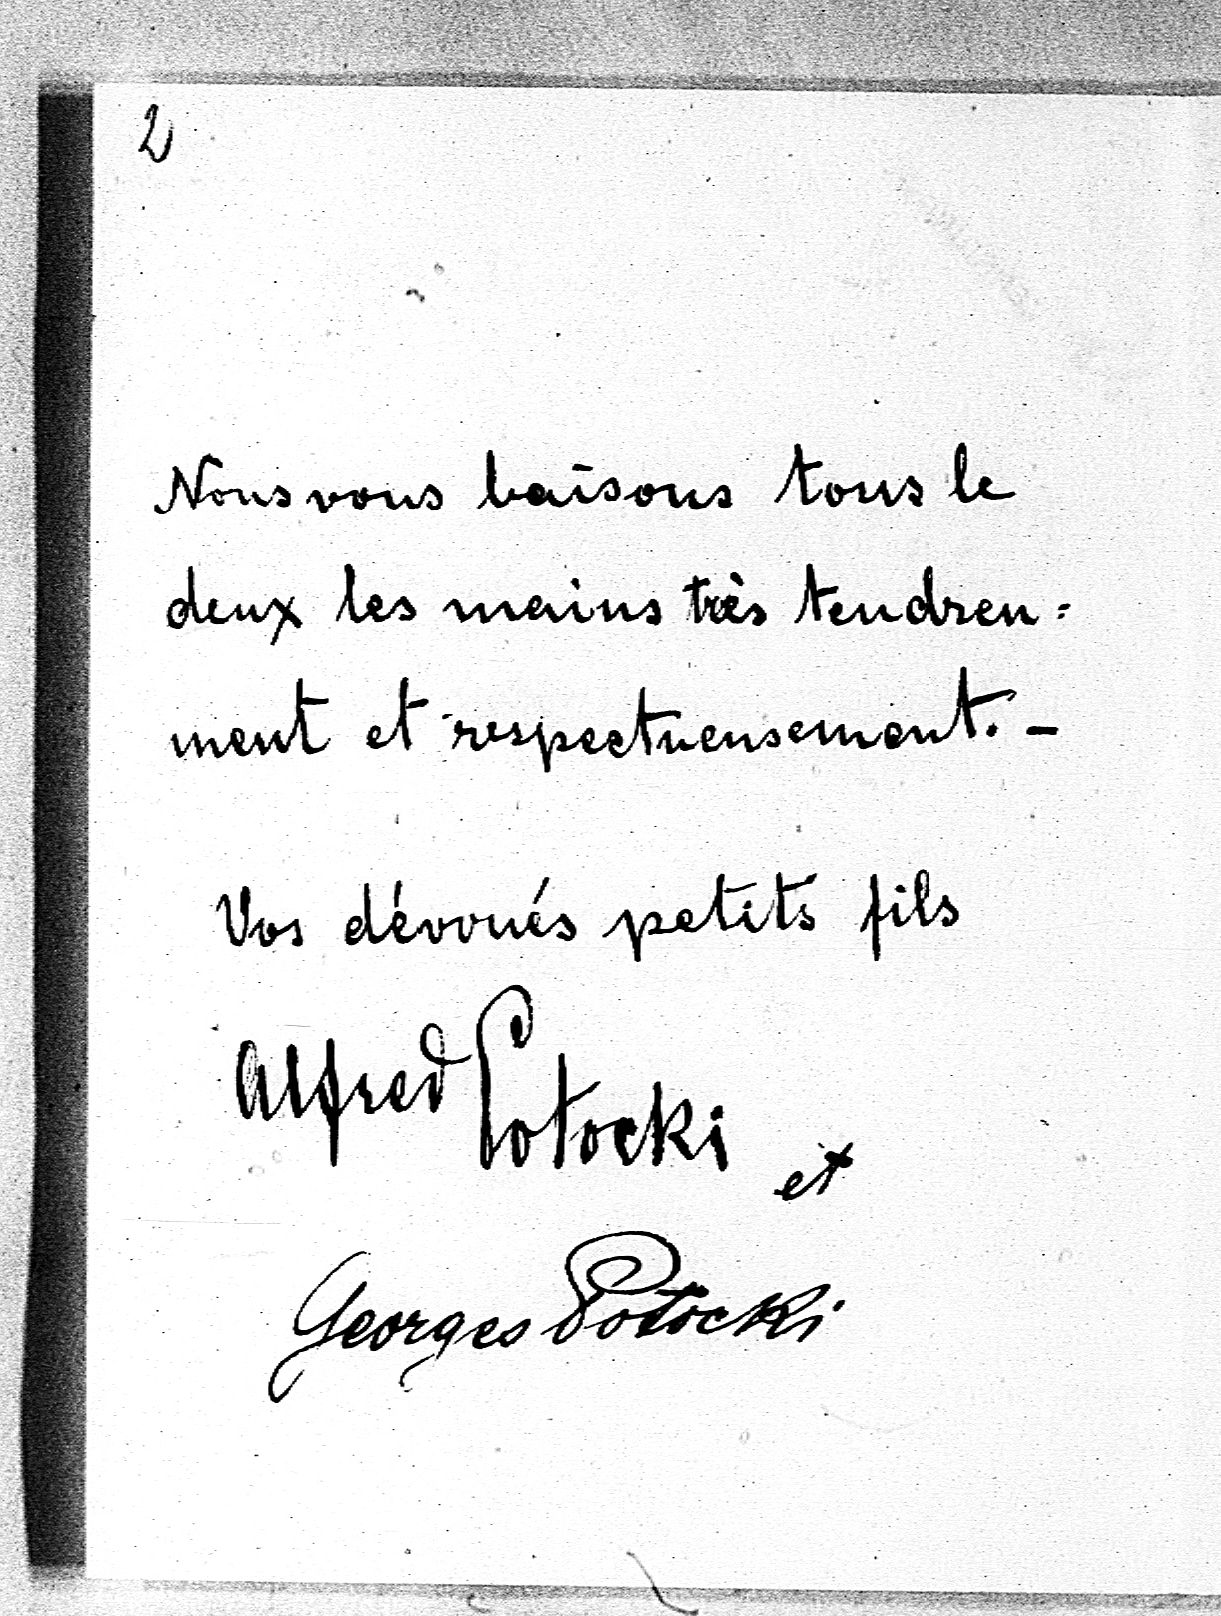 2
Nous vous baisons tous le
deux les mains très tendren=
ment et respectueusement. –
Vos dévoués petits fils
Alfred Potocki
et
Georges Potocki